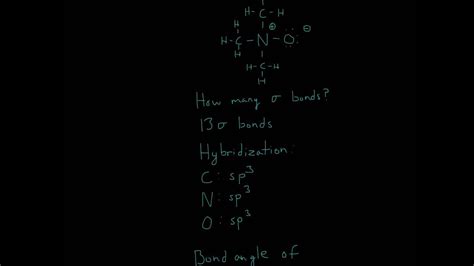 H-C-H
H-C-N-O:
H-C-H
How many σ bonds?
13σ bonds
Hybridization:
C: sp³
N: sp³
O: sp³
Bond angle of